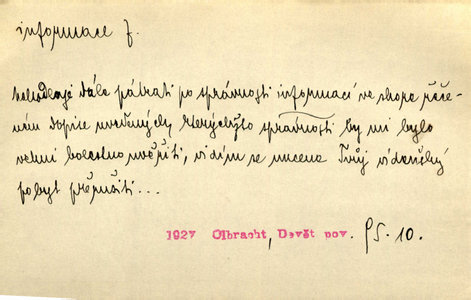 informace f.
nehodlajíc dále pátrati po správnosti informací ve shora řeče-
ném dopise uvedených, kterýchžto správnosti by mi bylo
velmi bolestno uvěřiti, vidím se nucena Tvůj vídeňský
pobyt připustiti...
1927 Olbracht, Devět pov. 10.